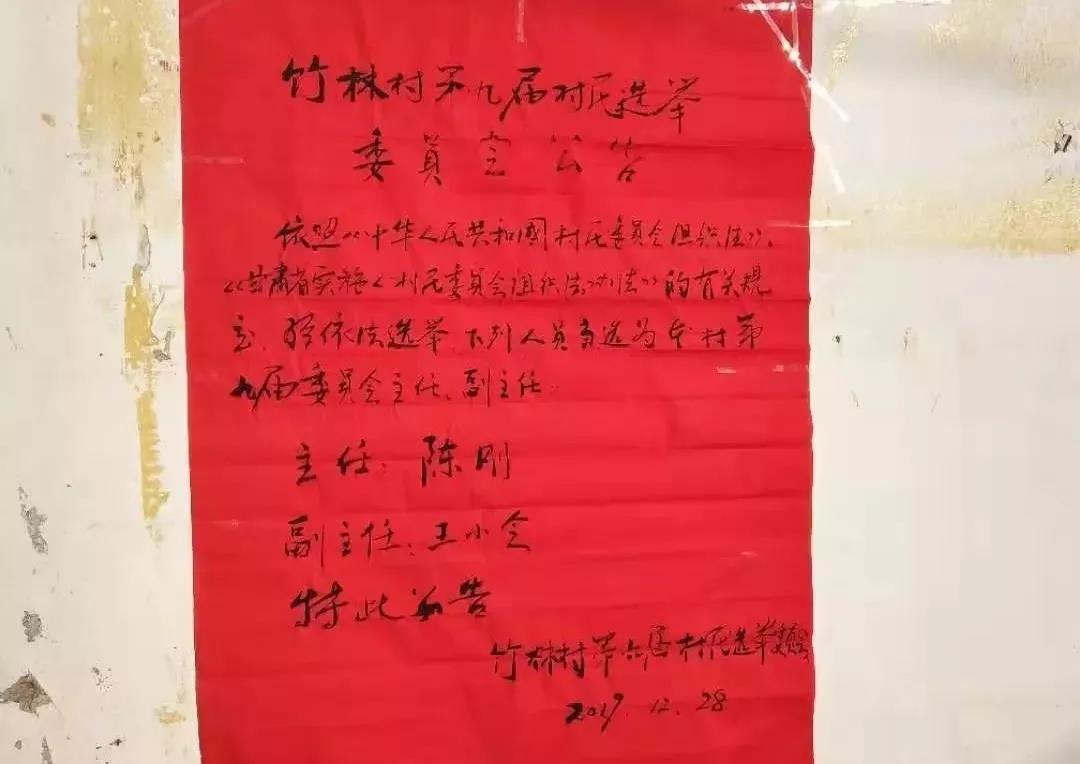 竹林村第九届村民选举
委员会公告
依照《中华人民共和國村民委員会组织法》、
《甘肃省实施〈村民委員会组织法〉办法》的有关规
定、经依法选举、下列人员当选为本村第
九届委员会主任、副主任.
主任：陈刚
副主任：王小会
特此公告
竹林村第九届村民选举委员会
2017.12.28